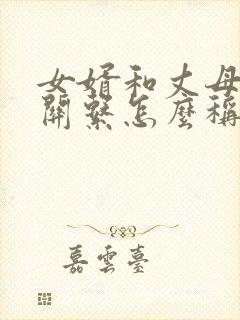 女婿和丈母
關繫怎麼稱
嘉雲臺